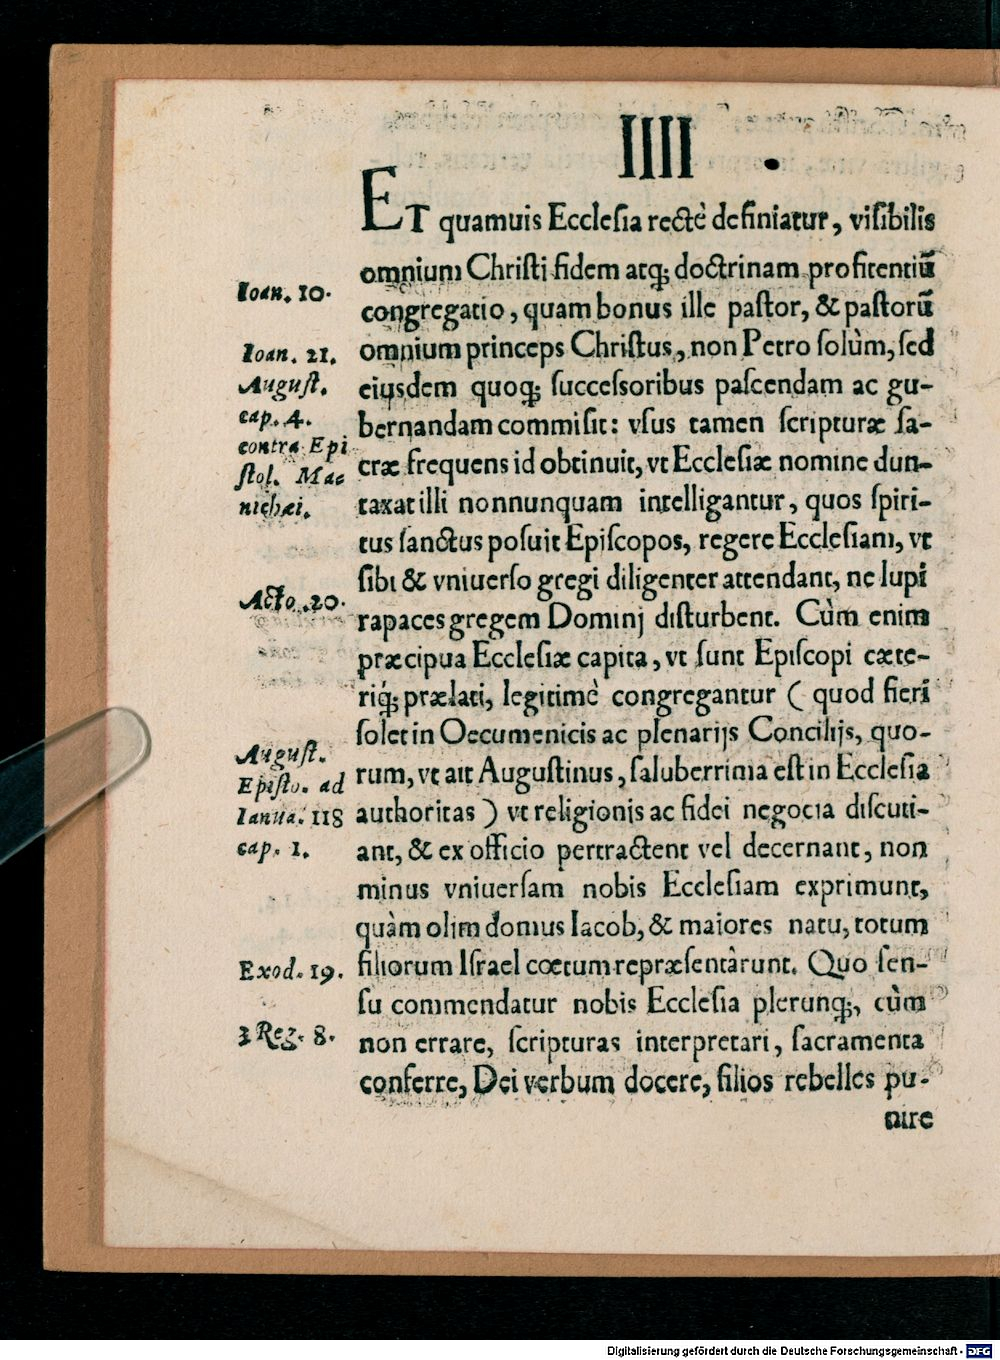 IIII
ET quamuis Ecclesia rectè definiatur, visibilis
omnium Christi fidem atq; doctrinam profitentiũ
Ioan. 10.
congregatio, quam bonus ille pastor, & pastorũ
omnium princeps Christus, non Petro solùm, sed
Ioan. 21.
eiusdem quoq; successoribus pascendam ac gu-
August.
bernandam commisit: vsus tamen scripturæ sa-
cap. 4.
cræ frequens id obtinuit, vt Ecclesiæ nomine dun-
contra Epi
stol. Mae
taxat illi nonnunquam intelligantur, quos spiri-
nichæi.
tus sanctus posuit Episcopos, regere Ecclesiam, vt
sibi & vniuerso gregi diligenter attendant, ne lupi
Acto. 20.
rapaces gregem Dominj disturbent. Cùm enim
præcipua Ecclesiæ capita, vt sunt Episcopi cæte-
riq́; prælati, legitimè congregantur ( quod fieri
solet in Oecumenicis ac plenarijs Concilijs, quo-
August.
rum, vt ait Augustinus, saluberrima est in Ecclesia
Episto. ad
authoritas ) vt religionis ac fidei negocia discuti-
Ianua. 118
cap. 1.
ant, & ex officio pertractent vel decernant, non
minus vniuersam nobis Ecclesiam exprimunt,
quàm olim domus Iacob, & maiores natu, totum
Exod. 19.
filiorum Israel cœtum repræsentârunt. Quo sen-
su commendatur nobis Ecclesia plerunq;, cùm
3 Reg. 8.
non errare, scripturas interpretari, sacramenta
conferre, Dei verbum docere, filios rebelles pu-
nire
Digitalisierung gefördert durch die Deutsche Forschungsgemeinschaft - DFG